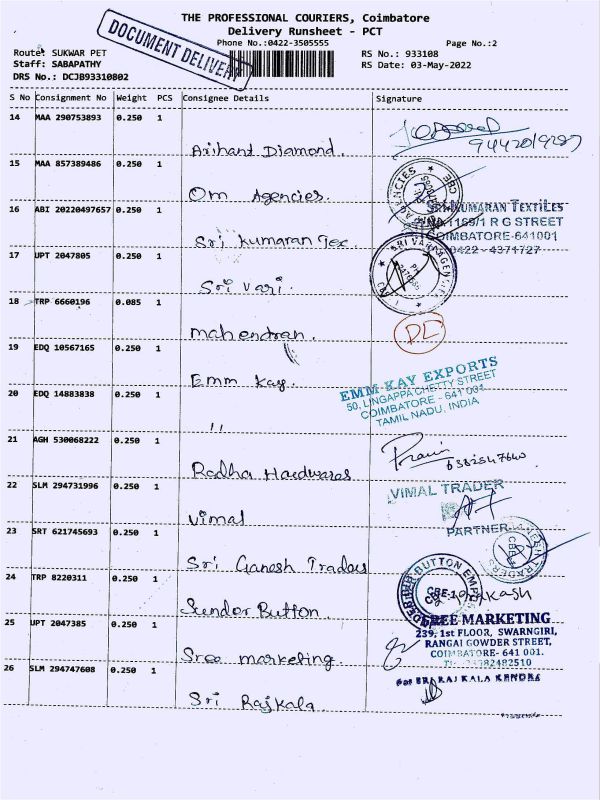 THE PROFESSIONAL COURIERS, Coimbatore
Delivery Runsheet - PCT
Phone No.:0422-3505555
Page No.:2
DOCUMENT DELIVERY
Route: SUKWAR PET
Staff: SABAPATHY
DRS No.: DCJB93310802
RS No.: 933108
RS Date: 03-May-2022
S No Consignment No Weight PCS Consignee Details Signature
14 MAA 290753893 0.250 1
Arihant Diamond.
15 MAA 857389486 0.250 1
Om Agencies.
16 ABI 20220497657 0.250 1
Sri Kumaran Tex
SRI KUMARAN TEXTILES
1169/1 R G STREET
COIMBATORE-641001
0422 - 4371727
17 UPT 2047805 0.250 1
Sri Vari.
18 TRP 6660196 0.085 1
Mahendran.
DL
19 EDQ 10567165 0.250 1
Emm Kay.
EMM KAY EXPORTS
50, LINGAPPA CHETTY STREET
COIMBATORE - 641 001.
TAMIL NADU, INDIA
20 EDQ 14883838 0.250 1
"
21 AGH 530068222 0.250 1
Radha Hardwares
22 SLM 294731996 0.250 1
Vimal
VIMAL TRADER
PARTNER
23 SRT 621745693 0.250 1
Sri Ganesh Traders
24 TRP 8220311 0.250 1
Sundor Button.
25 UPT 2047385 0.250 1
Sree marketing.
SREE MARKETING
239, 1st FLOOR, SWARNGIRI,
RANGAI GOWDER STREET,
COIMBATORE- 641 001.
26 SLM 294747608 0.250 1
Sri Rajkala.
For SRI RAJ KALA KENDRA